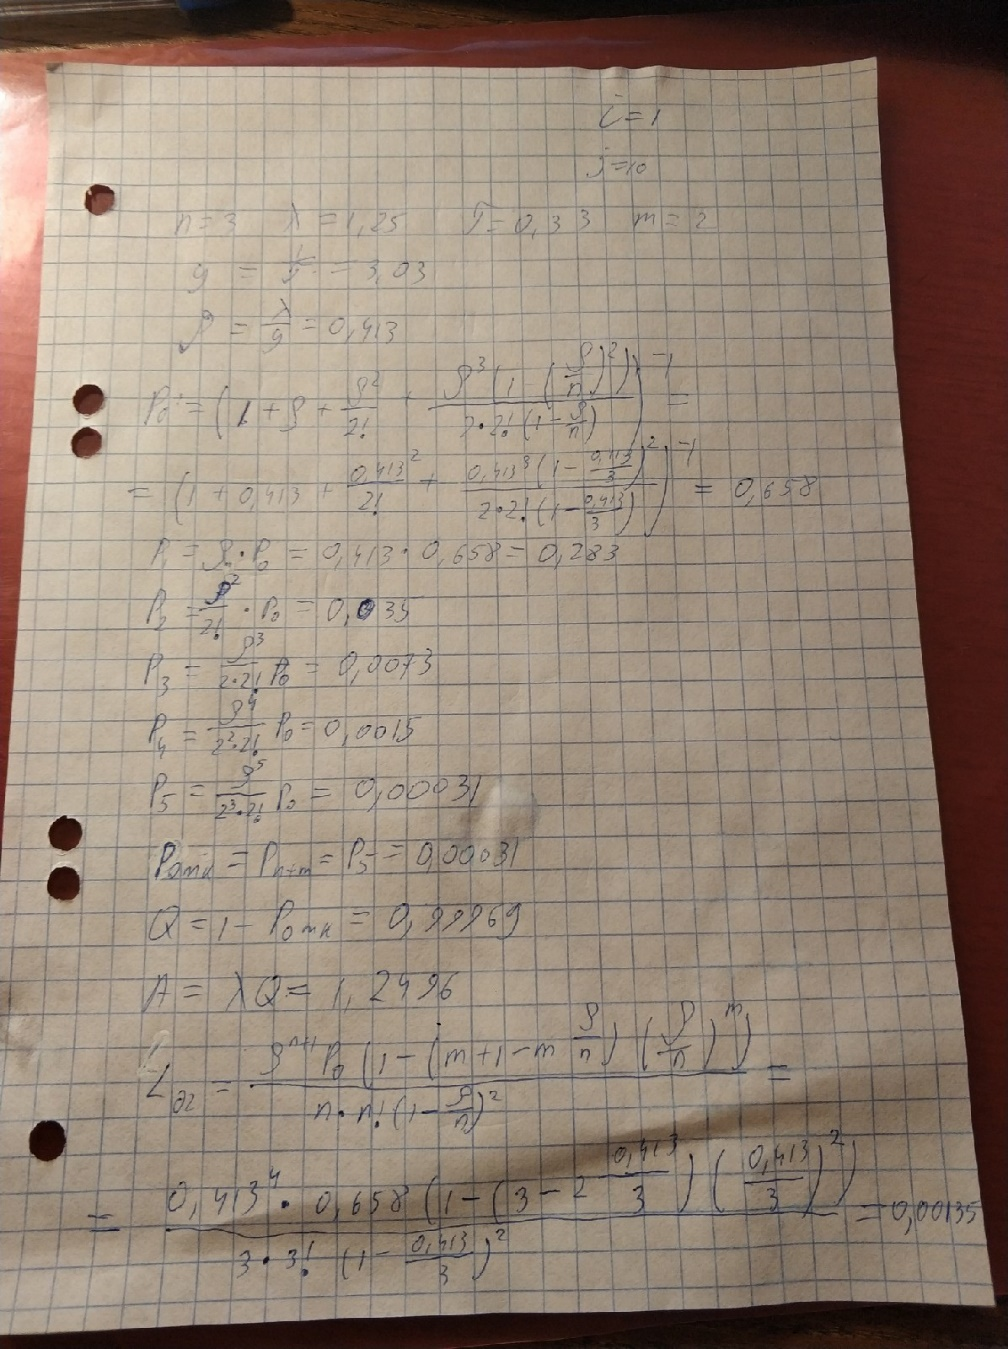 i=1
j=10
n=3 λ=1,25 T̄=0,33 m=2
g = 1/T̄ = 3,03
ρ = λ/g = 0,413
P₀ = (1 + ρ + ρ²/2! + ρ³(1 - (ρ/n)²)/(2·2!(1 - ρ/n)))⁻¹ =
= (1 + 0,413 + 0,413²/2! + 0,413³(1 - 0,413/3)²/(2·2!(1 - 0,413/3)))⁻¹ = 0,658
P₁ = ρ·P₀ = 0,413·0,658 = 0,283
P₂ = ρ²/2! · P₀ = 0,035
P₃ = ρ³/(2·2!) P₀ = 0,0073
P₄ = ρ⁴/(2²·2!) P₀ = 0,0015
P₅ = ρ⁵/(2³·2!) P₀ = 0,00031
Pотк = Pn+m = P₅ = 0,00031
Q = 1 - Pотк = 0,99969
A = λQ = 1,2496
Lог = ρⁿ⁺¹ P₀ (1 - (m+1-m ρ/n) (ρ/n)ᵐ)/(n·n!(1 - ρ/n)²) =
= 0,413⁴ · 0,658 (1 - (3 - 2 0,413/3) (0,413/3)²)/(3·3! (1 - 0,413/3)²) = 0,00135